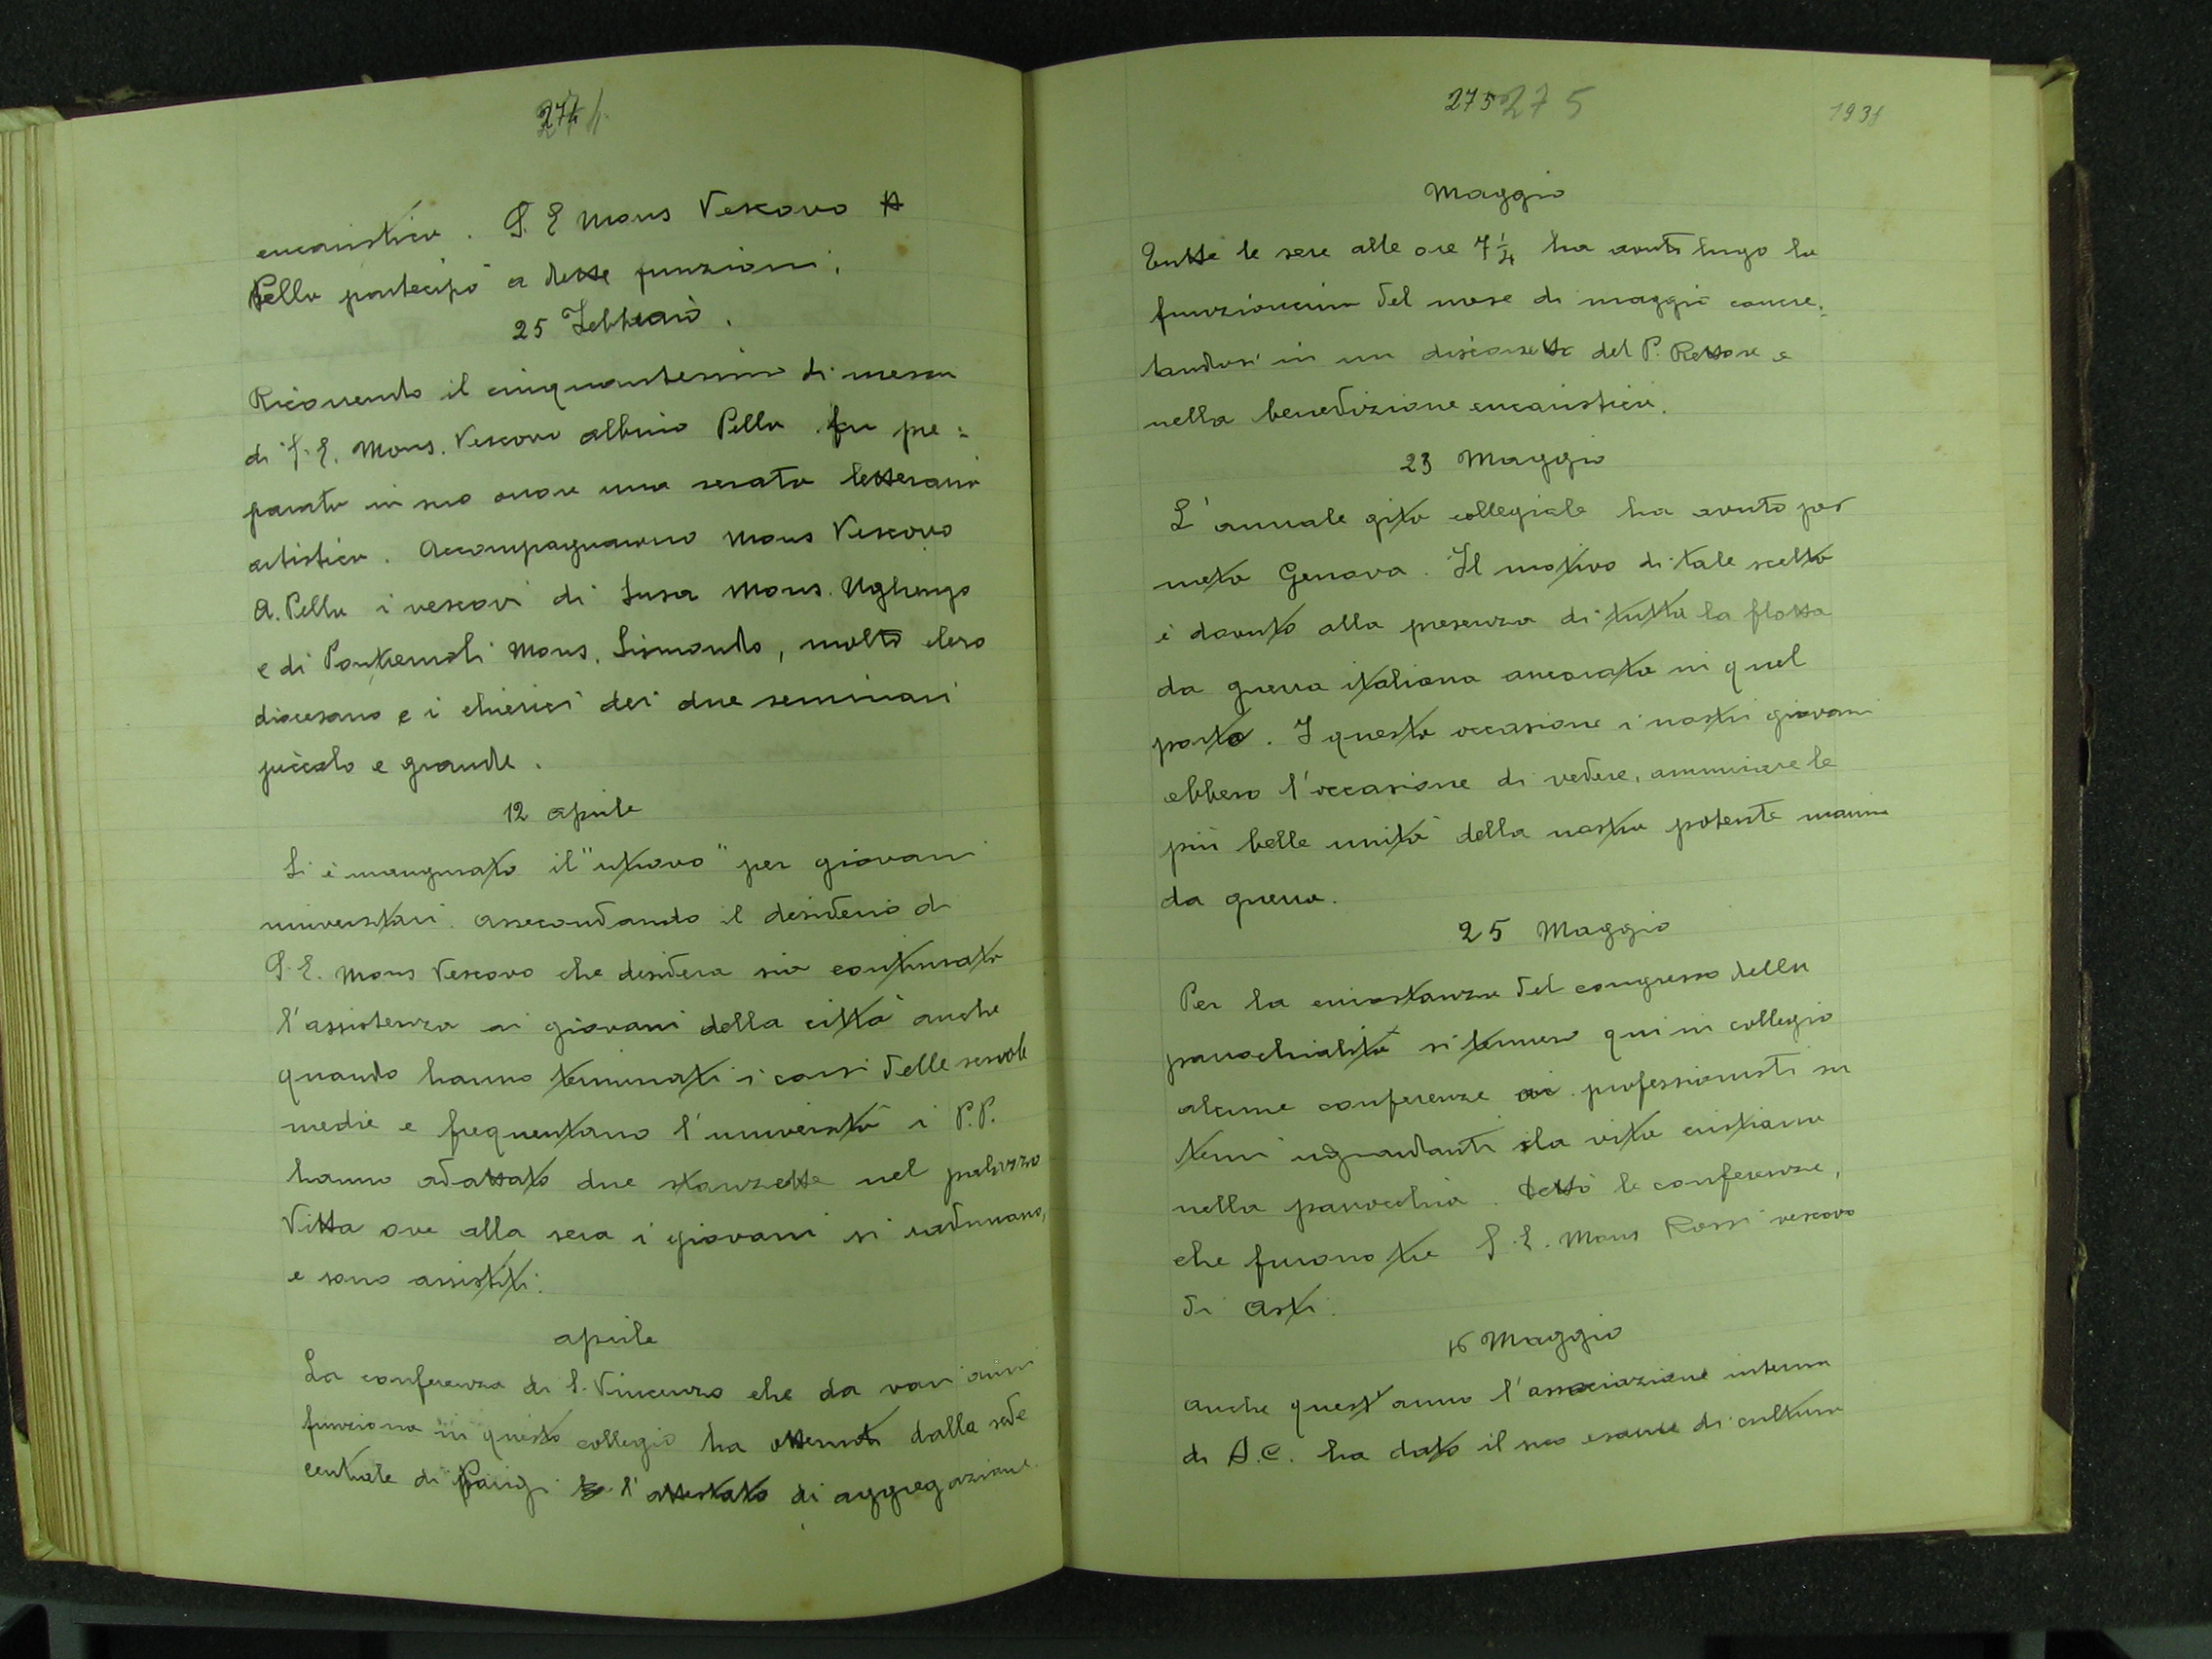 274
eucaristica. S. E Mons Vescovo A
Pella partecipò a dette funzioni.
25 Febbraio.
Ricorrendo il cinquantesimo di messa
di S. E. Mons. Vescovo albino Pella fu pre=
parata in suo onore una serata letteraria
artistica. Accompagnarono Mons Vescovo
A. Pella i vescovi di Susa Mons. Ughengo
e di Pontremoli Mons. Sismondo, molto clero
diocesano e i chierici dei due seminari
piccolo e grande.
12 aprile
Si è inaugurato il "ritrovo" per giovani
universitari. assecondando il desiderio di
S. E. Mons Vescovo che desidera sia continuata
l'assistenza ai giovani della città anche
quando hanno terminati i corsi delle scuole
medie e frequentano l'università i P.P.
hanno adattato due stanzette nel palazzo
Vitta ove alla sera i giovani si radunano,
e sono assistiti.
aprile
La conferenza di S. Vincenzo che da vari anni
funziona in questo collegio ha ottenuto dalla sede
centrale di Parigi l'attestato di aggregazione.
275 275
Maggio
Tutte le sere alle ore 7 1/4 ha avuto lugo la
funzioncina del mese di maggio concre=
tandosi in un discorsetto del P. Rettore e
nella benedizione eucaristica.
23 Maggio
L'annuale gita collegiale ha avuto per
meta Genova. Il motivo di tale scelta
è dovuto alla presenza di tutta la flotta
da guerra italiana ancorata in quel
porto. I questa occasione i nostri giovani
ebbero l'occasione di vedere, ammirare le
più belle unità della nostra potente marina
da guerra.
25 Maggio
Per la circostanza del congresso della
parrochialità si tennero qui in collegio
alcune conferenze ai professionisti su
temi riguardanti la vita cristiana
nella parrocchia. dettò le conferenze,
che furono tre S. E. Mons Rossi vescovo
di Asti.
16 Maggio
Anche quest'anno l'associazione interna
di A.C. ha dato il suo esame di cultura